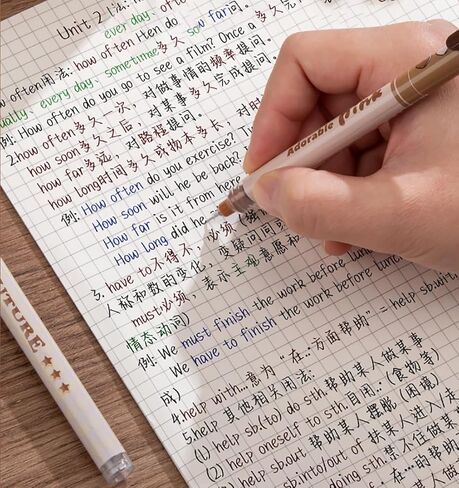 Unit 2
every day
1.how often用法: how often Hen do
often, sometime多久 son far问。
how often do you go to see a film? Once a
2.how often多久一次, 对做事情的频率提问。
how soon多久之后, 对某事多久完成提问。
how far多远, 对路程提问。
how long时间多久或物本多长, 对时
例: How often do you exercise?
How soon will he be back?
How far is it from here
How long did he
3. have to不得不, 必须
人称和数的变化, 变疑问
must必须, 表示主观意愿和
情态动词)
例: We must finish the work before
We have to finish the work before
4.help with...意为 "在..方面帮助" = help sb.
5.help 其他相关用法:
(1) help sb.(to) do sth 帮助某人做某事
(2) help oneself to sth.自用..(食物等)
(3) help sb.out 帮助某人摆脱 (困境)
sb.into/out of 扶某人进入/走
doing sth.禁不住做某
在...的帮助
帮助某人做
Adorable
TURE